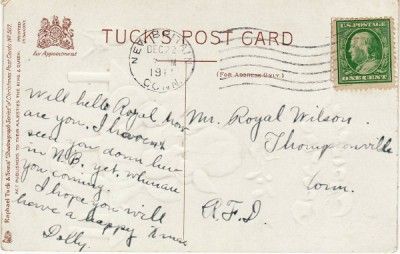 TUCK'S POST CARD
by Appointment
(FOR ADDRESS ONLY.)
NEW BRITAIN
DEC 22
CONN.
U.S. POSTAGE
ONE CENT
Well hello Royal how
are you. I havent
seen you down here
in N.B. yet. when are
you coming.
I hope you will
have a happy Xmas
Dolly.
Mr. Royal Wilson.
Thompsonville
Conn.
R.F.D.
Raphael Tuck & Sons'
ART PUBLISHERS TO THEIR MAJESTIES THE KING & QUEEN.
PRINTED